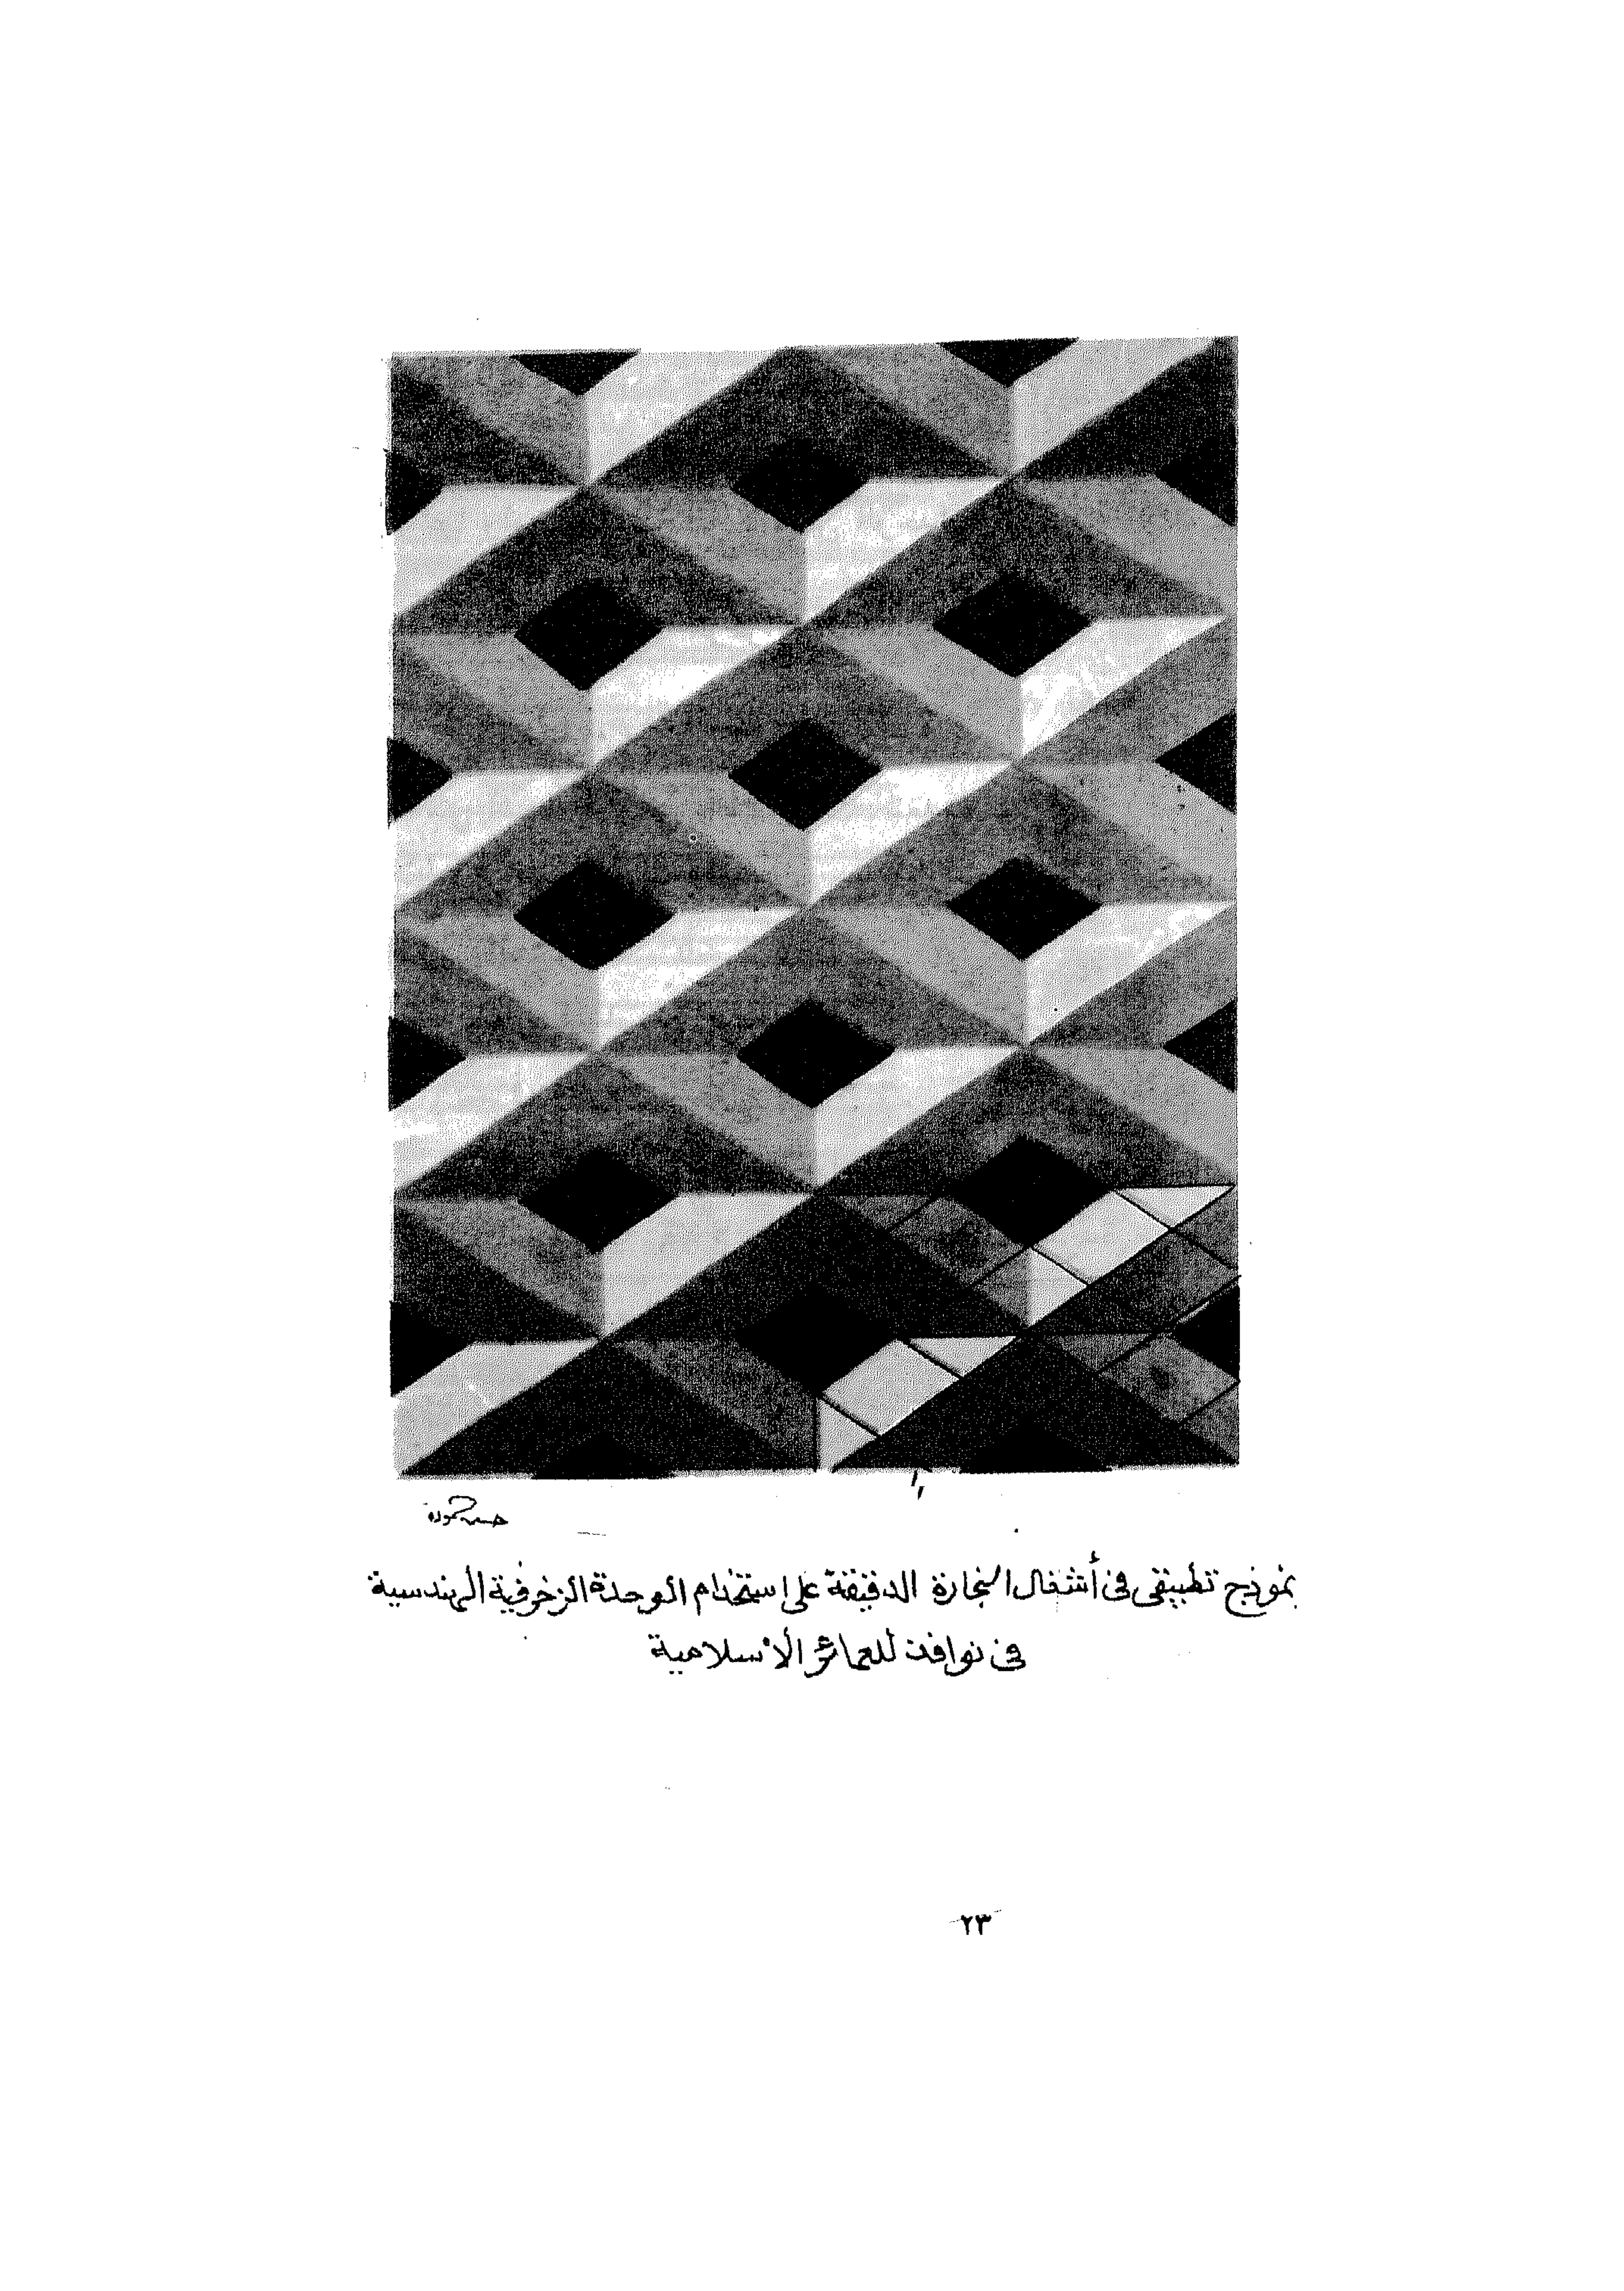 حسين حمودة
نموذج تطبيقى فى أشغال النجارة الدقيقة على استخدام الوحدة الزخرفية الهندسية
فى نوافذ للعمائر الاسلامية
٢٣